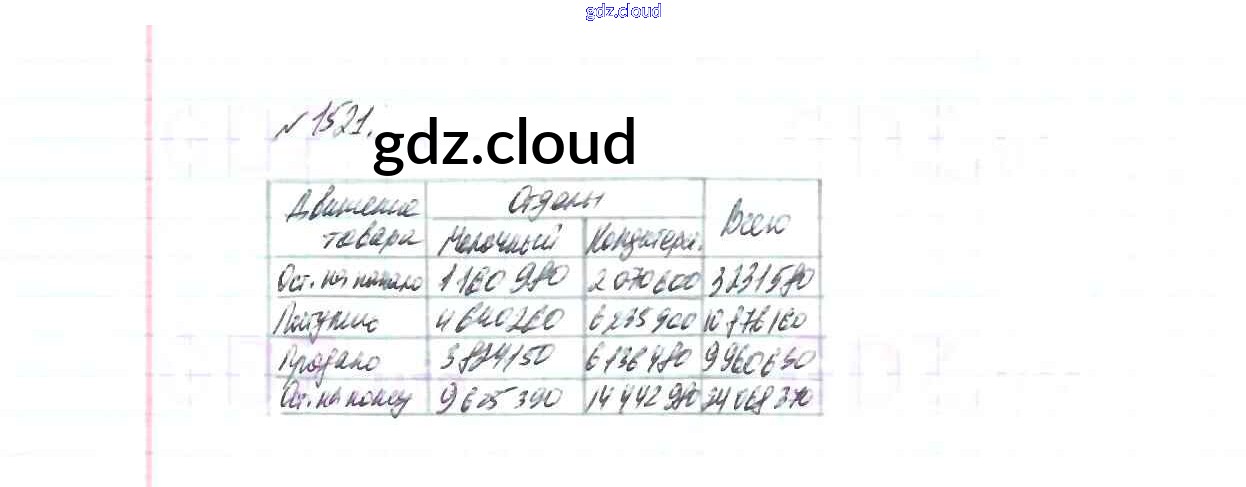 gdz.cloud
№1521.
gdz.cloud
Движение товара Отделы Всего
Молочный Кондитерск.
Ост. на начало 1160980 2070600 3231580
Поступило 4640260 6235900 10876160
Продано 3824150 6136480 9960630
Ост. на конец 9625390 14442980 24068370